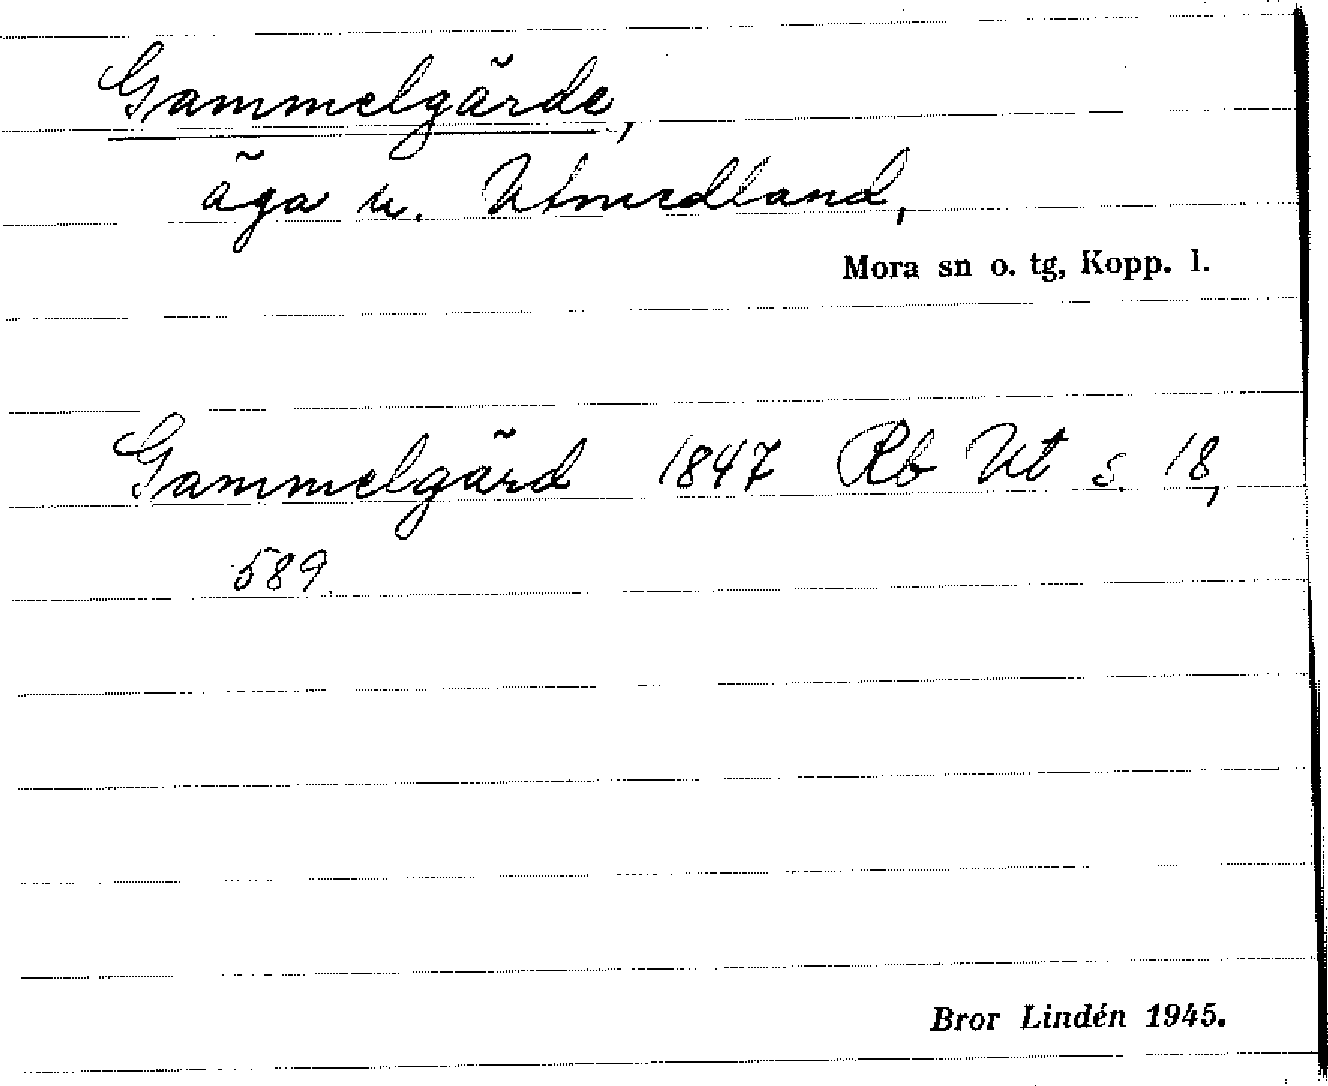 Gammelgärde,
äga u. Utmedland,
Mora sn o. tg, Kopp. l.
Gammelgärd 1847 Rb Ut s. 18,
589.
Bror Lindén 1945.